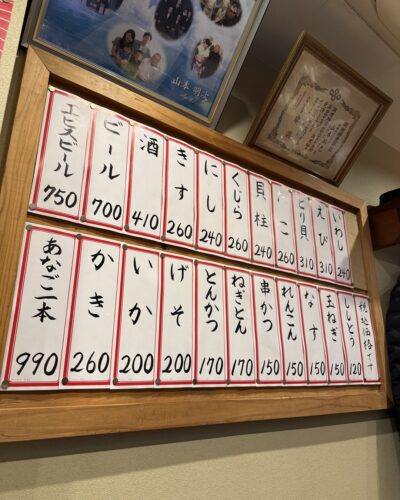 山本
いわし 240
えび 310
とり貝 310
こ 260
貝柱 240
くじら 260
にし 240
きす 260
酒 410
ビール 700
エビスビール 750
税込価格です
ししとう 120
玉ねぎ 150
なす 150
れんこん 150
串かつ 150
ねぎとん 170
とんかつ 170
げそ 200
いか 200
かき 260
あなご一本 990